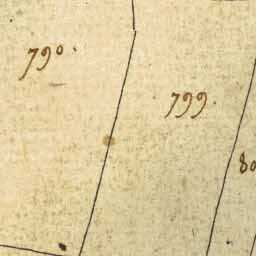 790
799
80